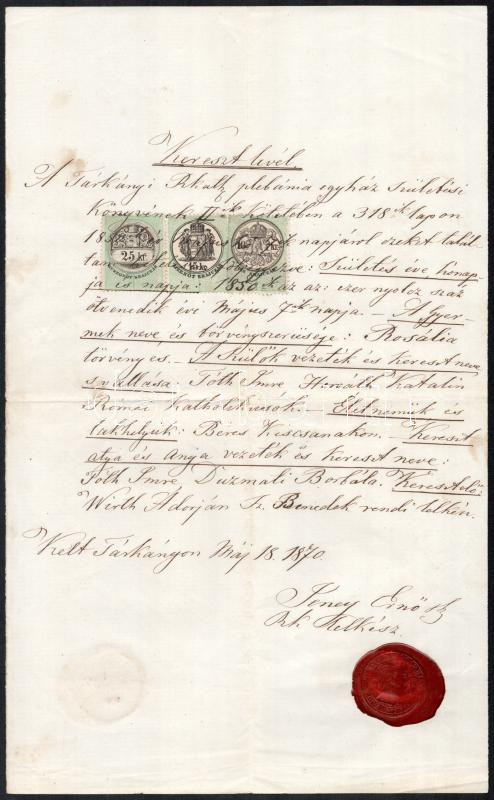 Kereszt levél.
A Tárkányi Rkath plebánia egyház Születési
Könyvének II ik kötetében a 318 ik lapon
napjáról ezeket
25 kr. 15 kr. 10
Születés éve hónap-
ja és napja: 1850 az az: ezer nyolcz száz
ötvenedik év Május 7ik napja. – A gyer-
mek neve és törvényszerüsége: Rosália
törvényes. – A Szülők vezeték és kereszt neve
s vallása: Tóth Imre Horváth Katalin
Romai Katholikusok. – és
lakhelyük: Béres Kiscsanakon. – Kereszt
atya és anya vezeték és kereszt neve:
Tóth Imre, Duzmati Borbála. Keresztelő:
Wirth Adorján Sz. Benedek rendi lelkész.
Kelt Tárkányon Máj 18. 1870.
Jeney Ernő sk
Rk. lelkész.